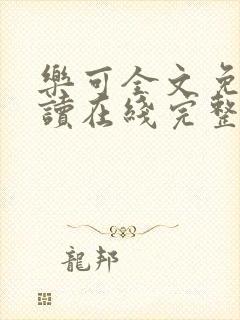 樂可全文免
讀在綫完整
龍邦